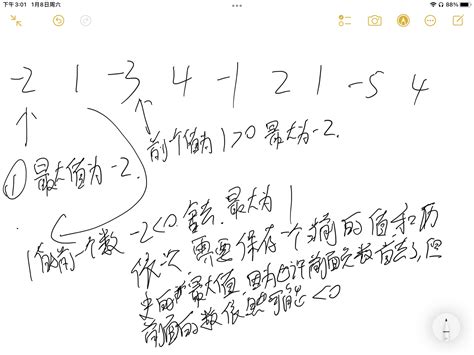 下午3:01 1月8日周六
88%
-2 1 -3 4 -1 2 1 -5 4
① 最大值为-2.
前个值为1>0 最大为-2.
1的前一个数 -2<0. 舍去. 最大为1
依次. 要保存一个前的值和历
史的最大值. 因为也许前面负数舍去了,但
前面的数依然可能<0